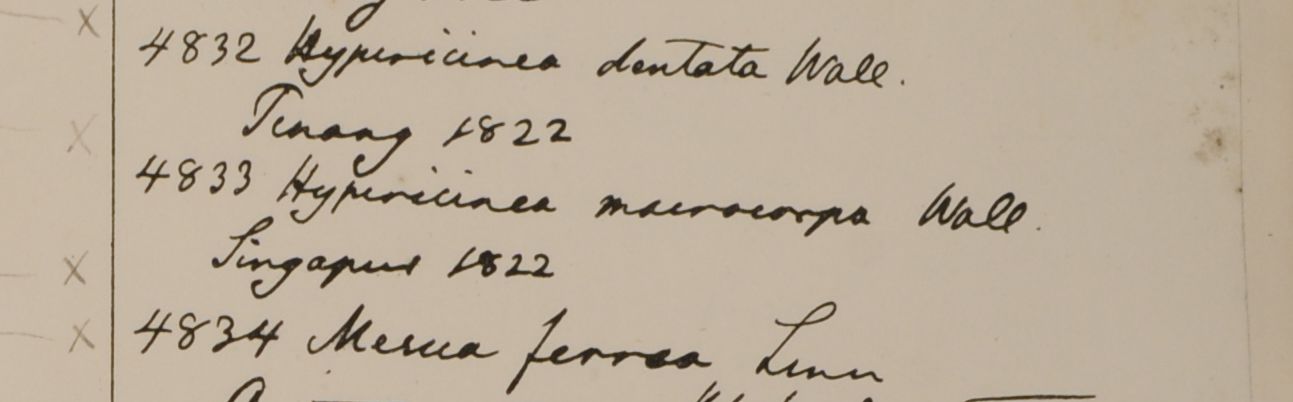 4832 Hypericinea dentata Wall.
Penang 1822
4833 Hypericinea macrocarpa Wall.
Singapur 1822
4834 Mesua ferrea Linn